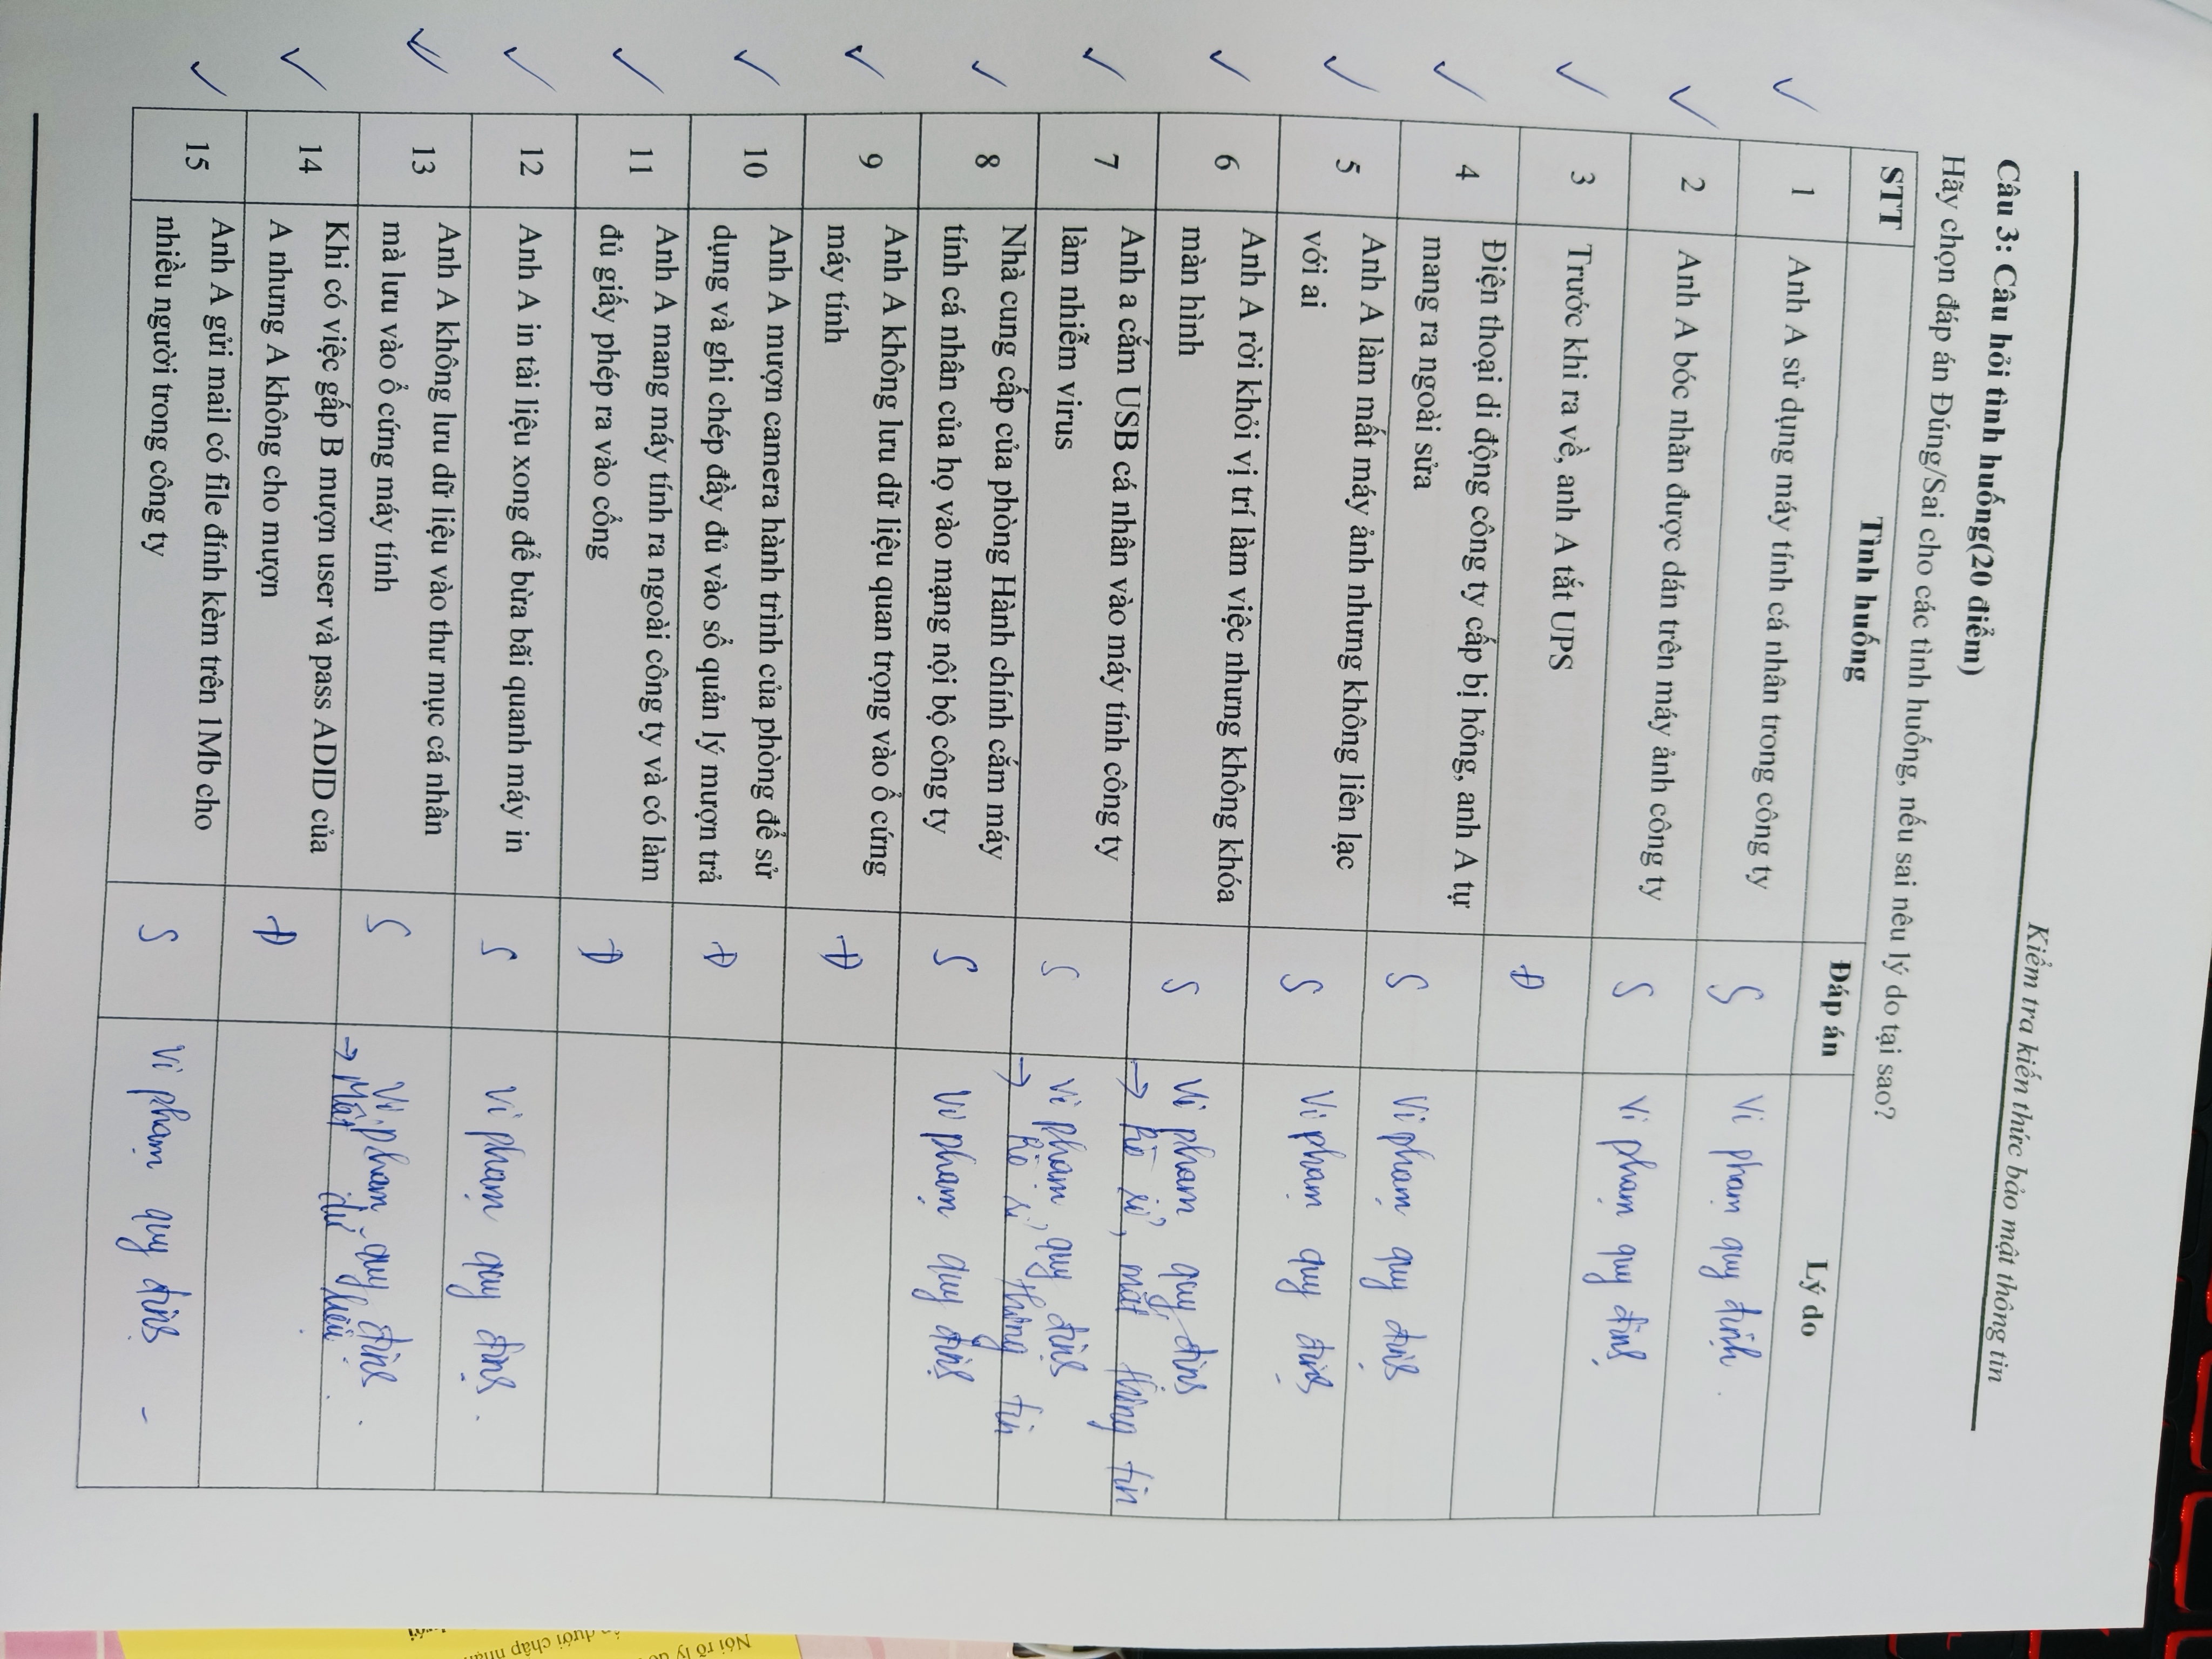 Kiểm tra kiến thức bảo mật thông tin
Câu 3: Câu hỏi tình huống(20 điểm)
Hãy chọn đáp án Đúng/Sai cho các tình huống, nếu sai nêu lý do tại sao?
STT Tình huống Đáp án Lý do
1 Anh A sử dụng máy tính cá nhân trong công ty S Vi phạm quy định.
2 Anh A bóc nhãn được dán trên máy ảnh công ty S Vi phạm quy định
3 Trước khi ra về, anh A tắt UPS Đ
4 Điện thoại di động công ty cấp bị hỏng, anh A tự S Vi phạm quy định
mang ra ngoài sửa
5 Anh A làm mất máy ảnh nhưng không liên lạc S Vi phạm quy định
với ai
6 Anh A rời khỏi vị trí làm việc nhưng không khóa S Vi phạm quy định
màn hình → Rò rỉ, mất thông tin
7 Anh a cắm USB cá nhân vào máy tính công ty S Vi phạm quy định
làm nhiễm virus → Rò rỉ thông tin
8 Nhà cung cấp của phòng Hành chính cắm máy S Vi phạm quy định
tính cá nhân của họ vào mạng nội bộ công ty
9 Anh A không lưu dữ liệu quan trọng vào ổ cứng Đ
máy tính
10 Anh A mượn camera hành trình của phòng để sử Đ
dụng và ghi chép đầy đủ vào sổ quản lý mượn trả
11 Anh A mang máy tính ra ngoài công ty và có làm Đ
đủ giấy phép ra vào cổng
12 Anh A in tài liệu xong để bừa bãi quanh máy in S Vi phạm quy định.
13 Anh A không lưu dữ liệu vào thư mục cá nhân S Vi phạm quy định.
mà lưu vào ổ cứng máy tính → Mất dữ liệu.
14 Khi có việc gấp B mượn user và pass ADID của Đ
A nhưng A không cho mượn
15 Anh A gửi mail có file đính kèm trên 1Mb cho S Vi phạm quy định -
nhiều người trong công ty